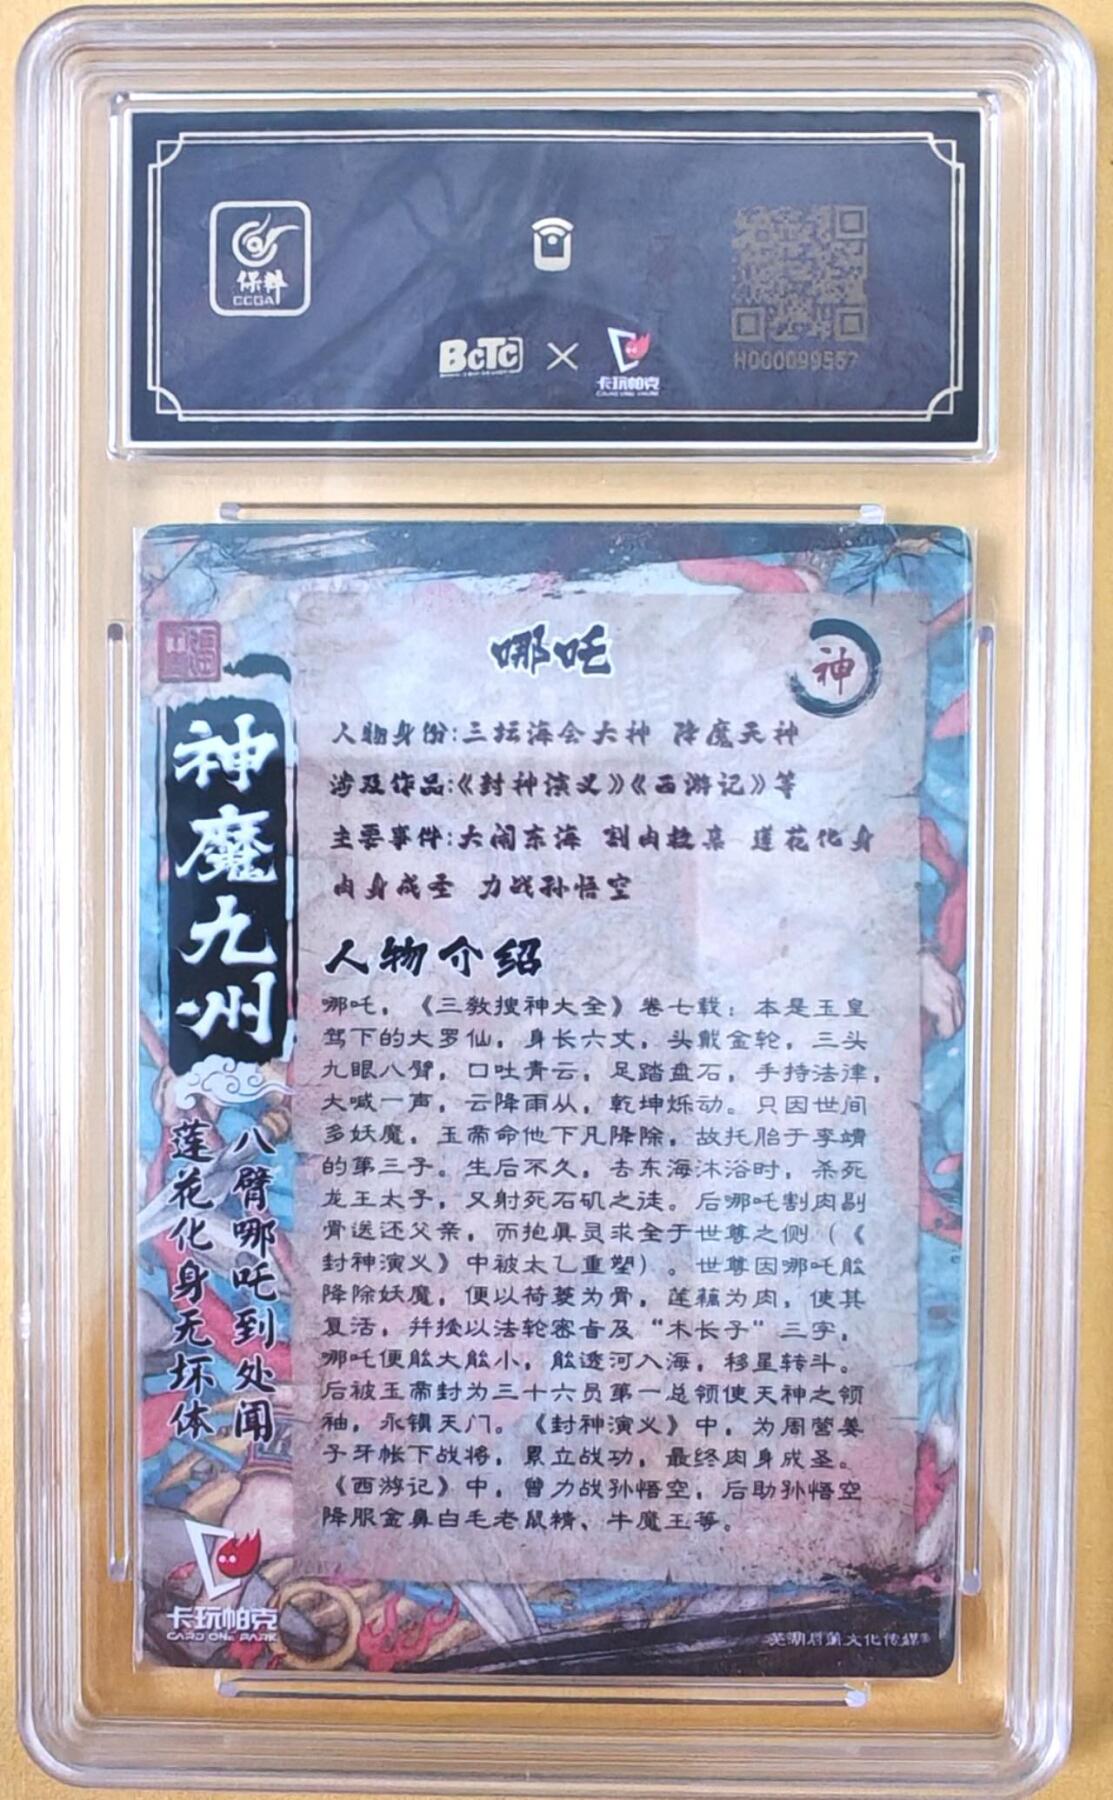 保粹
CCGA
BCTC
卡玩帕克
H000099567
哪吒
神
神魔九州
八臂哪吒到处闻
莲花化身无坏体
人物身份:三坛海会大神 降魔天神
涉及作品:《封神演义》《西游记》等
主要事件:大闹东海 割肉救亲 莲花化身
肉身成圣 力战孙悟空
人物介绍
哪吒，《三教搜神大全》卷七载：本是玉皇
驾下的大罗仙，身长六丈，头戴金轮，三头
九眼八臂，口吐青云，足踏盘石，手持法律，
大喊一声，云降雨从，乾坤烁动。只因世间
多妖魔，玉帝命他下凡降除，故托胎于李靖
的第三子。生后不久，去东海沐浴时，杀死
龙王太子，又射死石矶之徒。后哪吒割肉剔
骨送还父亲，而抱真灵求全于世尊之侧（《
封神演义》中被太乙重塑）。世尊因哪吒能
降除妖魔，便以荷菱为骨，莲藕为肉，使其
复活，并授以法轮密旨及“木长子”三字，
哪吒便能大能小，能透河入海，移星转斗。
后被玉帝封为三十六员第一总领使天神之领
袖，永镇天门。《封神演义》中，为周营姜
子牙帐下战将，累立战功，最终肉身成圣。
《西游记》中，曾力战孙悟空，后助孙悟空
降服金鼻白毛老鼠精、牛魔王等。
卡玩帕克
CARD ONE PARK